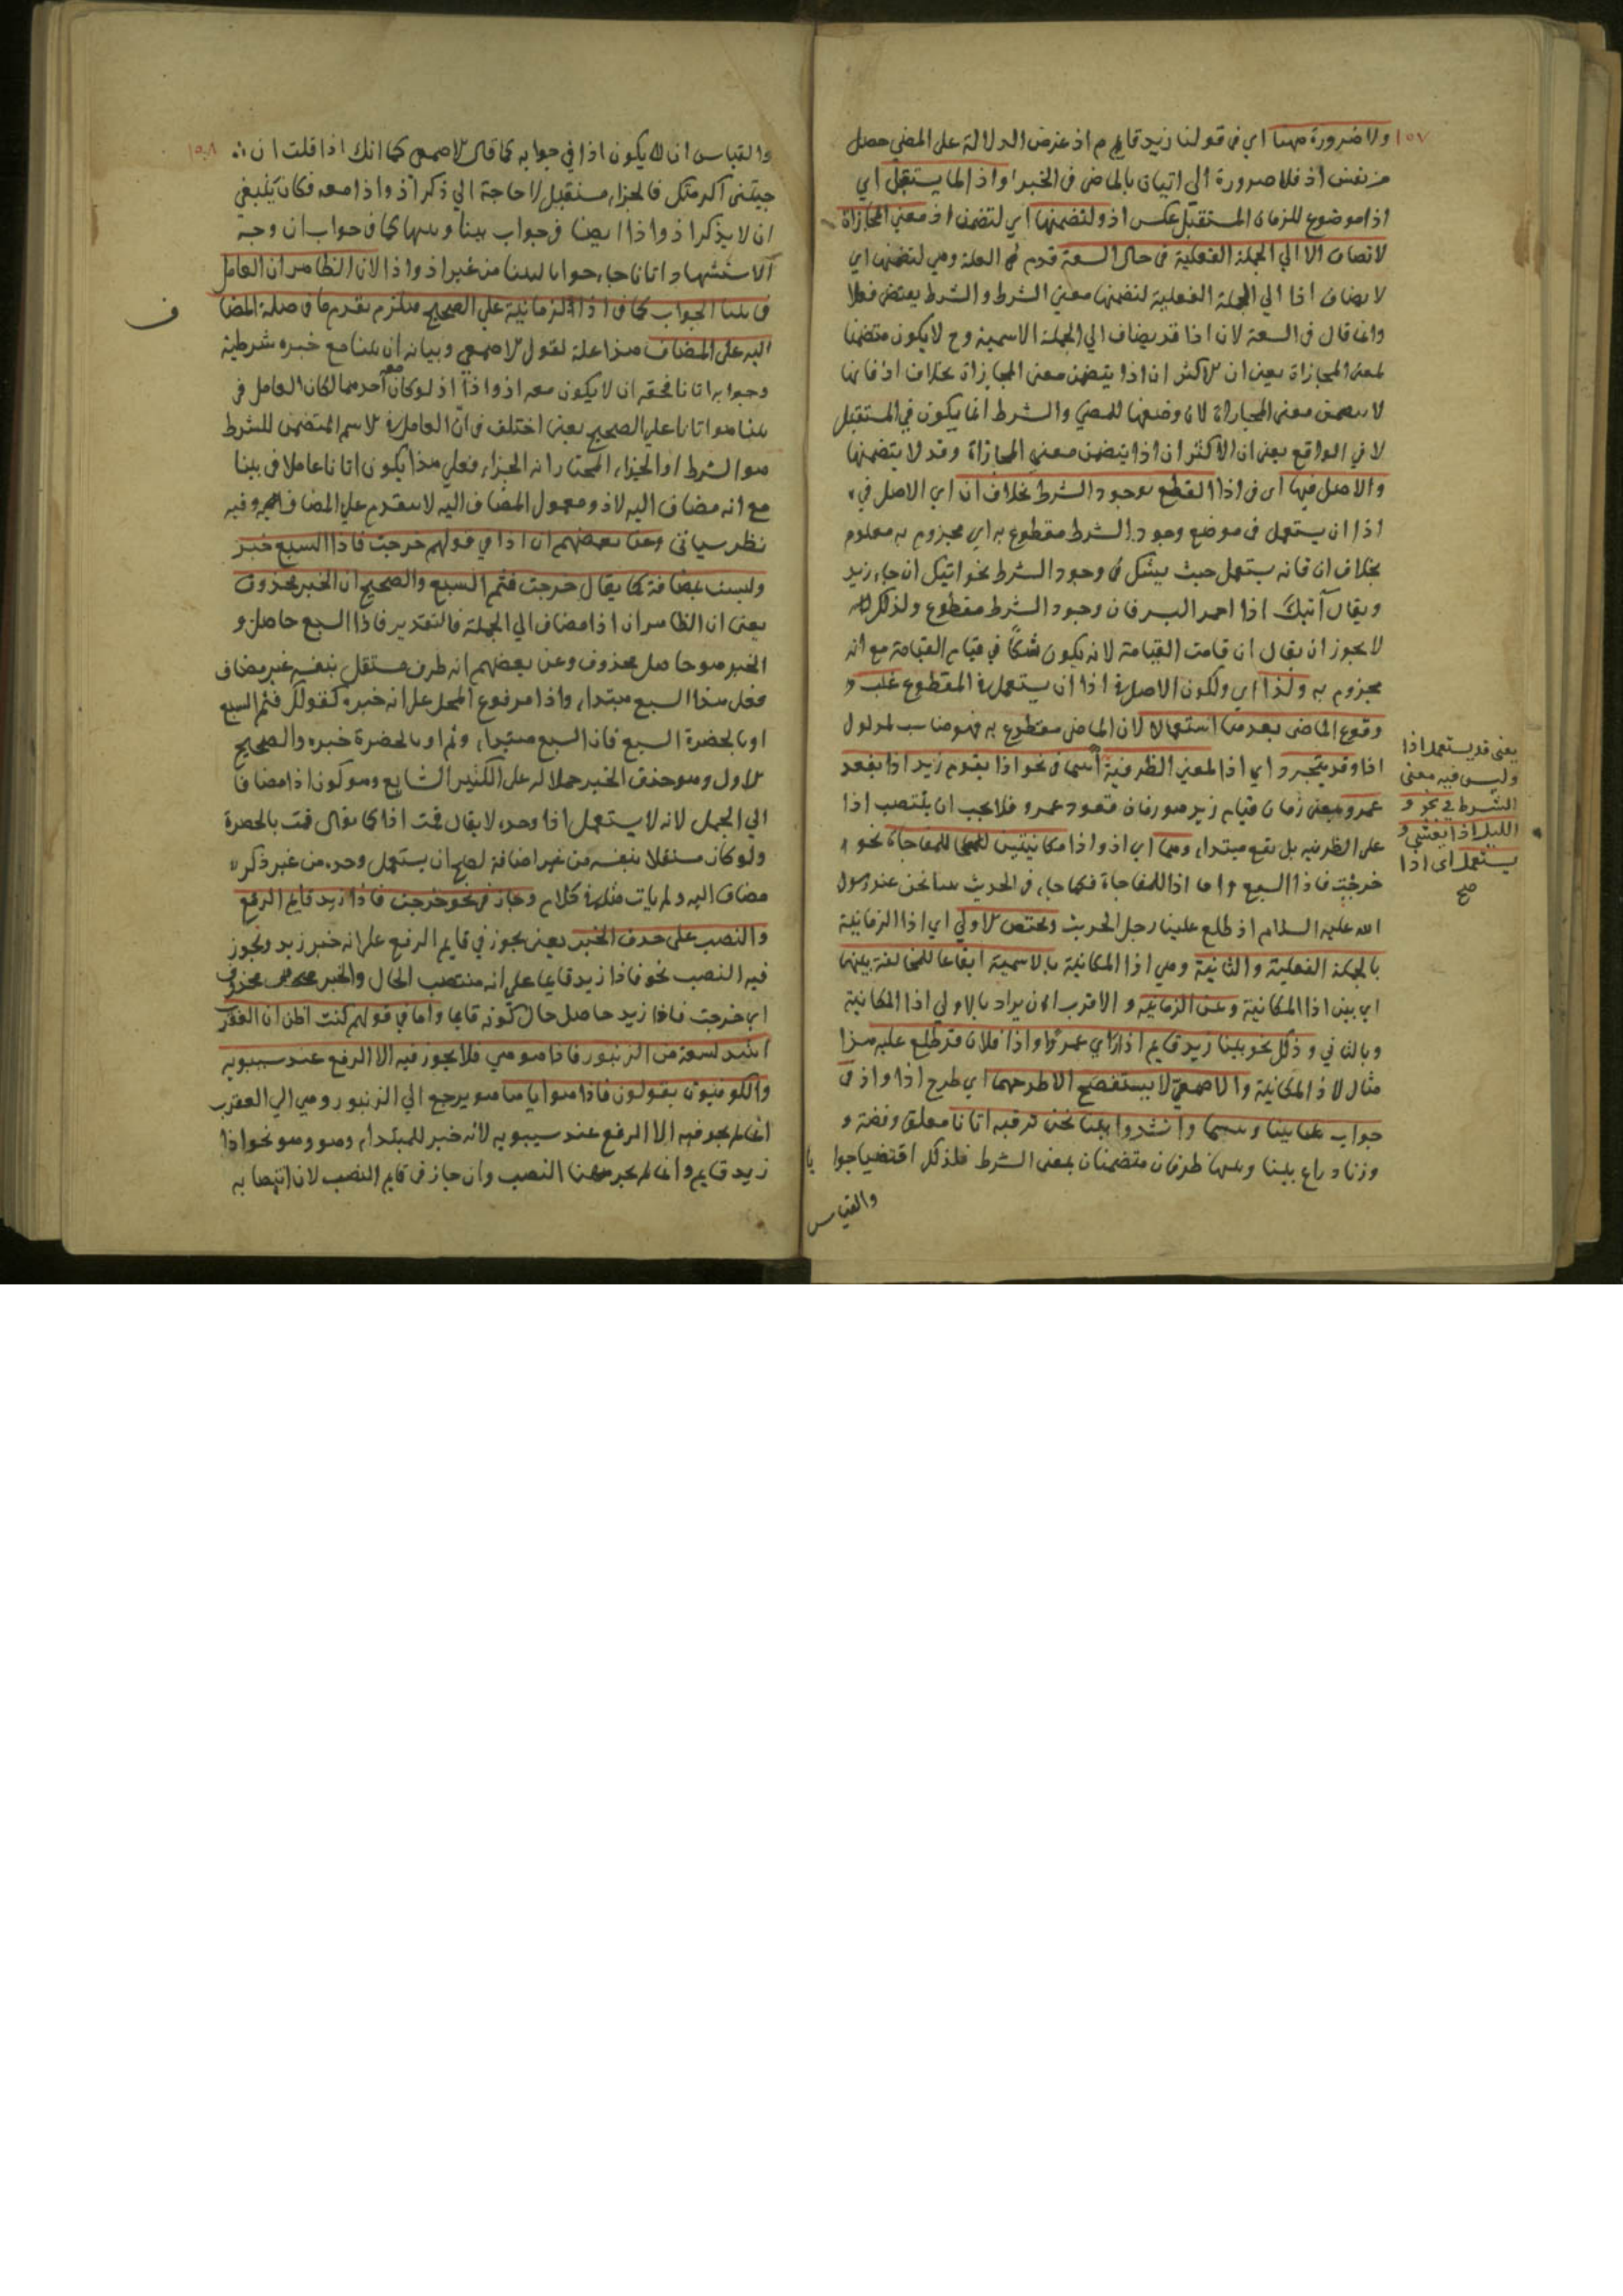 ١٥٧
ولا ضرورة ههنا اي في قولنا زيد قايم م اذ غرض الدلالة على المضي حصل
من نفس اذ فلا ضرورة الي اتيان بالماضي في الخبر واذا لما يستقبل اي
اذا موضوع للزمان المستقبل عكس اذ ولتضمنها اي لتضمن اذ معني المجازاة
لا تضاف الا الي الجملة الفعلية في حال السعة قدم في العلة وهي لتضمنها اي
لا يضاف اذا الي الجملة الفعلية لتضمنها معني الشرط والشرط يقتضي فعلا
وانما قال في السعة لان اذا قد يضاف الي الجملة الاسمية وح لا يكون متضمنا
لمعني المجازاة يعني ان الاكثر ان اذا يتضمن معني المجازاة بخلاف اذ فانها
لا يتضمن معني المجازاة لان وضعها للمضي والشرط انما يكون في المستقبل
لا في الواقع يعني ان الاكثر ان اذا يتضمن معني المجازاة وقد لا يتضمنها
والاصل فيها اي في اذا القطع بوجود الشرط بخلاف ان اي الاصل في
اذا ان يستعمل في موضع وجود الشرط مقطوع به اي مجزوم به معلوم
بخلاف ان فانه يستعمل حيث يشك في وجود الشرط نحو اتيك ان جاء زيد
ويقال آتيك اذا احمر البسر فان وجود الشرط مقطوع ولذلك
لا يجوز ان يقال ان قامت القيامة لانه يكون شكا في قيام القيامة مع انه
مجزوم به ولذا اي ولكون الاصل في اذا ان يستعمل في المقطوع غلب
وقوع الماضي بعدها استعمالا لان الماضي مقطوع به فهو مناسب لمدلول
اذا وقد يتجرد اي اذا لمعني الظرفية اسما في نحو اذا يقوم زيد اذا يقعد
عمرو بمعني زمان قيام زيد هو زمان قعود عمرو فلا يجب ان ينتصب اذا
على الظرفيه بل يقع مبتداء وهما اي اذ واذا مكانيتين للمفاجاة نحو
خرجت فاذا السبع واما اذ للمفاجاة فكما جاء في الحديث بينا نحن عند رسول
الله عليه السلام اذ طلع علينا رجل الحديث ويختص الاولي اي اذا الزمانية
بالجملة الفعلية والثانية وهي اذا المكانية بالاسمية ايقاعا للمخالفة بينها
اي بين اذا المكانية وبين الزمانيه والاقرب ان يراد بالاولي اذا المكانية
وبالثاني وذلك نحو بينا زيد قايم اذ راي عمروا واذا فلان قد طلع عليه هذا
مثال لاذ المكانية والاصمعي لا يستفصح الا طرحهما اي طرح اذا واذ في
جواب بينا وبينما وانشدوا بينا نحن نرقبه اتانا معلق وفضة و
وزناد راع بينا وبينما ظرفان متضمنان لمعني الشرط فلذلك اقتضيا جوابا
والقياس
يعني قد يستعمل اذا
وليس فيه معني
الشرط في نحو و
الليل اذا يغشي و
يستعمل اي اذا
صح
١٥٨
والقياس ان لا يكون اذا في جوابه كما قال الاصمعي كما انك اذا قلت ان
جيتني اكرمتك فالجزاء مستقبل لا حاجة الي ذكر اذ واذا معه فكان ينبغي
ان لا يذكر اذ واذا ايضا في جواب بينا وبينما كما في جواب ان وجه
الاستشهاد اتانا جاء جوابا لبينا من غير اذ واذا لان الظاهر ان العامل
في بينا الجواب كما في اذا الزمانية على الصحيح فيلزم تقدم ما في صلة المضاف
اليه على المضاف هذا علة لقول الاصمعي وبيانه ان بينا مع خبره شرطية
وجوابه اتانا فحقه ان لا يكون معه اذ واذا اذ لو كان معه احدهما لكان العامل في
بينا هو اتانا على الصحيح يعني اختلف في ان العامل في الاسم المتضمن للشرط
هو الشرط او الجزاء المختار انه الجزاء فعلي هذا يكون اتانا عاملا في بينا
مع انه مضاف اليه لاذ ومعمول المضاف اليه لا يتقدم على المضاف وفيه
نظر سياتي وعن بعضهم ان اذا في قولهم خرجت فاذا السبع خبر
وليست بمضافة كما يقال خرجت فثم السبع والصحيح ان الخبر محذوف
يعني ان الظاهر ان اذا مضاف الي الجملة فالتقدير فاذا السبع حاصل و
الخبر هو حاصل محذوف وعن بعضهم انه ظرف مستقل بنفسه غير مضاف
فعلى هذا السبع مبتداء واذا مرفوع المحل على انه خبره كقولك فثم السبع
او بالحضرة السبع فان السبع مبتداء وثم او بالحضرة خبره والصحيح
الاول وهو حذف الخبر حملا له على الكثير الشايع وهو كون اذا مضافا
الي الجمل لانه لا يستعمل اذا وحده لا يقال قمت اذا كما يقال قمت بالحضرة
ولو كان مستقلا بنفسه من غير اضافة لصح ان يستعمل وحده من غير ذكر
مضاف اليه ولم يات مثله في كلام وجاز في نحو خرجت فاذا زيد قايم الرفع
والنصب على حذف الخبر يعني يجوز في قايم الرفع على انه خبر زيد ويجوز
فيه النصب نحو فاذا زيد قايما على انه منتصب الحال والخبر محذوف
اي خرجت فاذا زيد حاصل حال كونه قايما واما في قولهم كنت اظن ان العقرب
اشد لسعة من الزنبور فاذا هو هي فلا يجوز فيه الا الرفع عند سيبويه
والكوفيون يقولون فاذا هو اياها هو يرجع الي الزنبور وهي الي العقرب
انما لم يجز فيه الا الرفع عند سيبويه لانه خبر للمبتداء وهو وهو نحو اذا
زيد قايم وانما لم يجز ههنا النصب وان جاز في قايم النصب لان انتصابه
ف